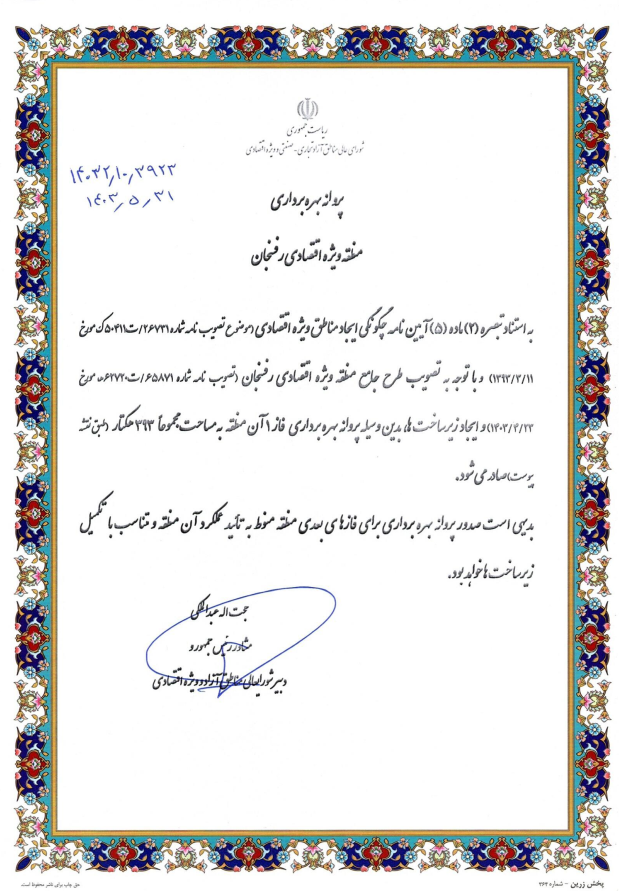 ریاست جمهوری
شورای عالی مناطق آزاد تجاری - صنعتی و ویژه اقتصادی
۱۴۰۳۲/۱۰/۳۹۲۳
۱۴۰۳/۵/۳۱
پروانه بهره برداری
منطقه ویژه اقتصادی رفسنجان
به استناد تبصره (۲) ماده (۵) آیین نامه چگونگی ایجاد مناطق ویژه اقتصادی (موضوع تصویب نامه شماره ۲۶۷۳۱/ت۵۰۴۱۱ک مورخ
۱۳۹۳/۳/۱۱) و با توجه به تصویب طرح جامع منطقه ویژه اقتصادی رفسنجان (تصویب نامه شماره ۶۵۸۷۱/ت۶۲۷۲۰ه‍ مورخ
۱۴۰۳/۴/۲۳) و ایجاد زیرساخت ها، بدین وسیله پروانه بهره برداری فاز ۱ آن منطقه به مساحت مجموعاً ۳۹۳ هکتار (طبق نقشه
پیوست) صادر می شود.
بدیهی است صدور پروانه بهره برداری برای فازهای بعدی منطقه منوط به تأیید عملکرد آن منطقه و متناسب با تکمیل
زیرساخت ها خواهد بود.
حجت اله عبدالملکی
مشاور رئیس جمهور و
دبیر شورایعالی مناطق آزاد و ویژه اقتصادی
پخش زرین - شماره ۲۶۴
حق چاپ برای ناشر محفوظ است